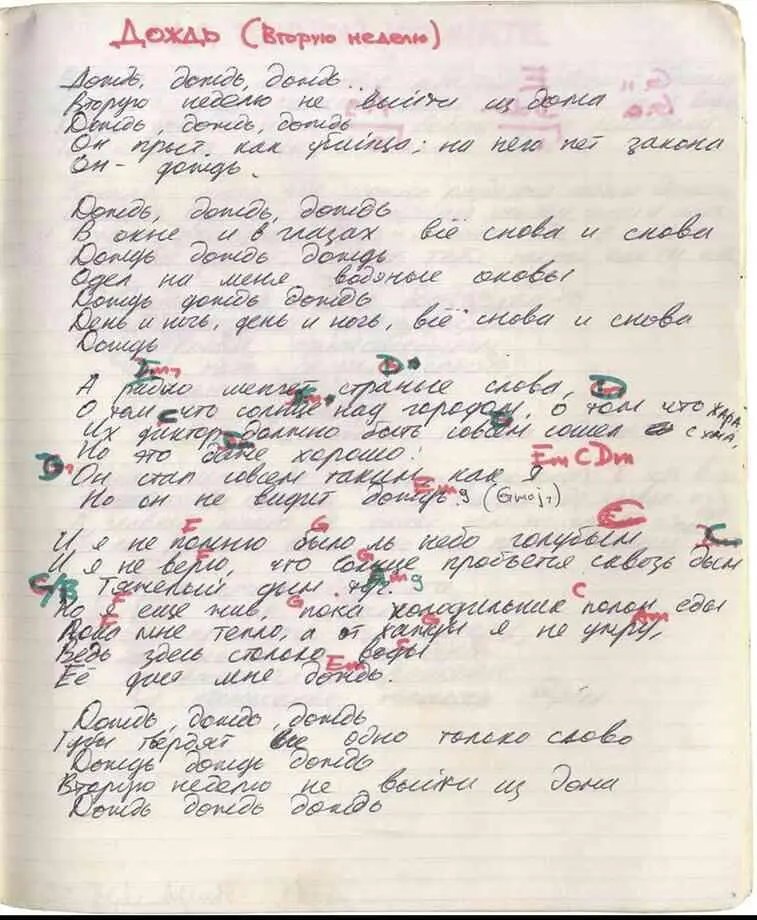 Дождь (Вторую неделю)
Дождь, дождь, дождь..
Вторую неделю не выйти из дома
Дождь, дождь, дождь
Он прост, как убийца; на него нет закона
Он - дождь.
Дождь, дождь, дождь
В окне и в глазах всё снова и снова
Дождь дождь дождь
Одел на меня водяные оковы
Дождь дождь дождь
День и ночь, день и ночь, всё снова и снова
Дождь
Em7 D
А радио шепчет страные слова, G
О том что солнце над городом, о том что жара
C G
Их диктор должно быть совсем сошел с ума,
Но это даже хорошо! Em C Dm
Он стал совсем таким как я
Но он не видит дождь. Em9 (Gmaj7)
F G C
И я не помню было ль небо голубым C
F G
И я не верю, что солнце пробьется сквозь дым
C/B Тяжелый дым Am9
F G C
Но я еще жив, пока холодильник полон еды
F G Am
Пока мне тепло, а от жажды я не умру,
Ведь здесь столько воды
Em
Её дал мне дождь.
Дождь, дождь, дождь
Тучи твердят все одно только слово
Дождь дождь дождь
Вторую неделю не выйти из дома
Дождь дождь дождь